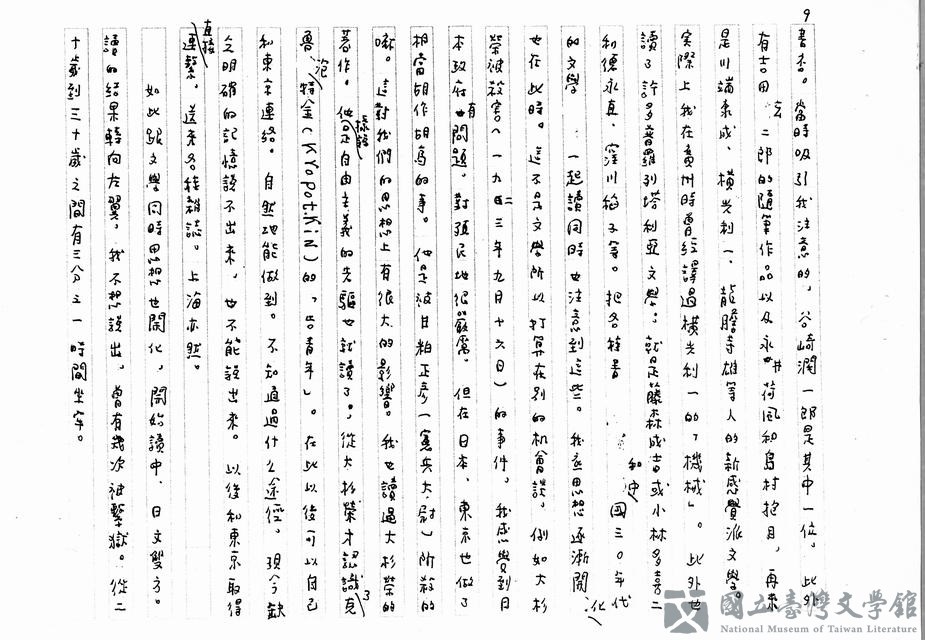 9
書店。當時吸引我注意的，谷崎潤一郎是其中一位，此外
有吉田絃二郎的隨筆作品以及永井荷風和島村抱月，再來
是川端康成、橫光利一、龍膽寺雄等人的新感覺派文學。
實際上我在廣州時曾經譯過橫光利一的「機械」。此外也
讀了許多普羅列塔利亞文學；就是藤森成吉或小林多喜二
和德永直、窪川稻子等。把各特書 和中國三○年代
的文學 一起讀同時也注意到這些。我底思想逐漸開化，
也在此時。這不是文學所以打算在別的机會談。例如大杉
榮被殺害（一九二三年九月十六日）的事件。我感覺到日
本政府也有問題。對殖民地很嚴厲。但在日本，東京也做了
相當胡作胡為的事。他是被甘粕正彥（憲兵大尉）所殺的
嘛。這對我們的思想上有很大的影響。我也讀過大杉榮的
著作。他是自由主義的先驅也就讀了。從大杉榮才認識了克
魯泡特金（KYopotKin）的「告青年」。在此以後可以自己
和東京連絡。自然地能做到。不知通過什么途徑。現今缺
乏明確的記憶說不出來，也不能說出來。以後和東京取得
直接連繫，送來各種雜誌。上海亦然。
如此跟文學同時思想也開化，開始讀中、日文雙方。
讀的結果轉向左翼，我不想說出，曾有幾次被擊獄。從二
十歲到三十歲之間有三分之一時間坐牢。
國立臺灣文學館
National Museum of Taiwan Literature